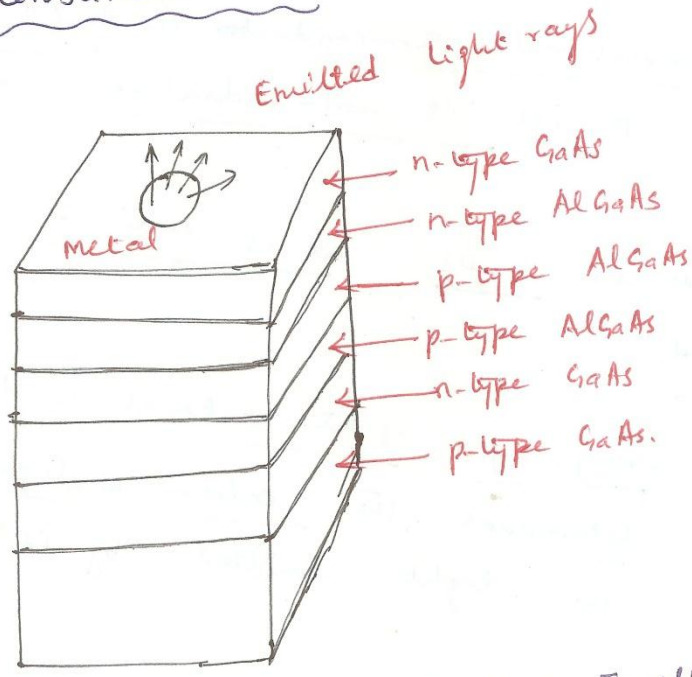 Emitted light rays
Metal
n-type GaAs
n-type AlGaAs
p-type AlGaAs
p-type AlGaAs
n-type GaAs
p-type GaAs.